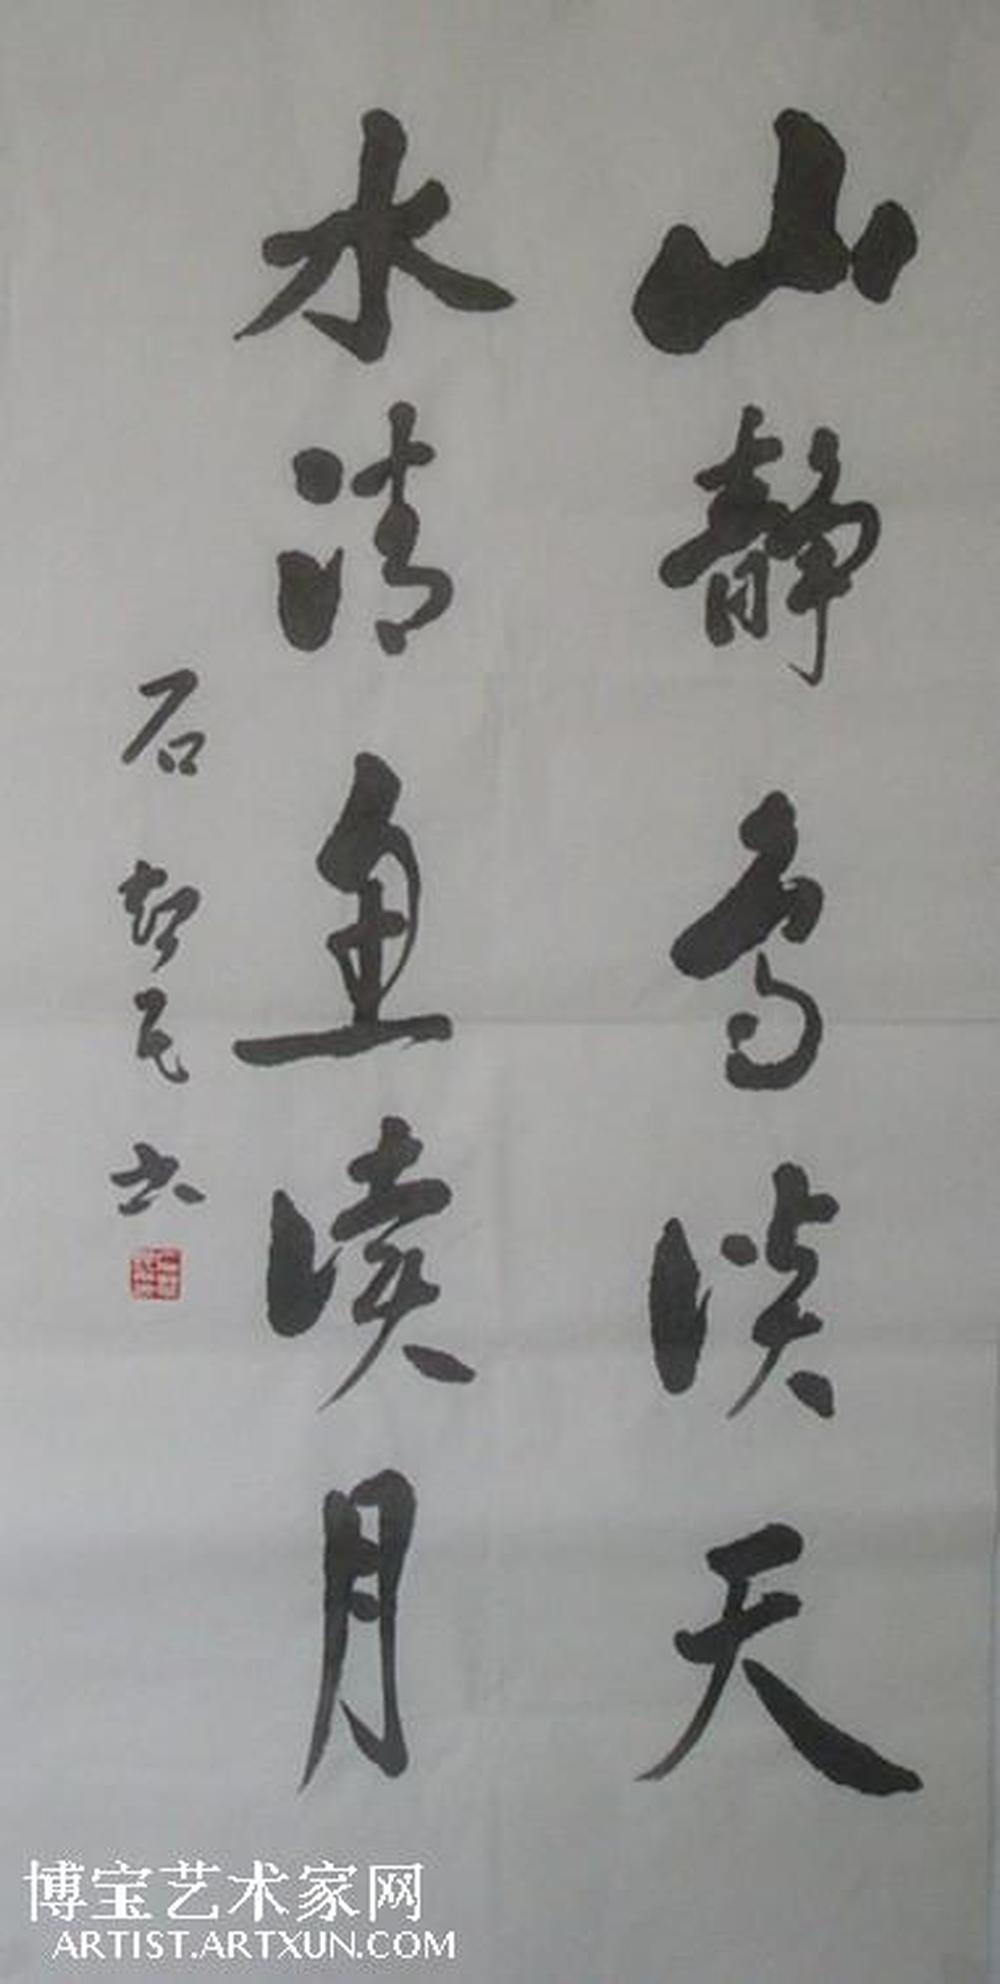 山静鸟谈天
水清鱼读月
石智民书
博宝艺术家网
ARTIST.ARTXUN.COM